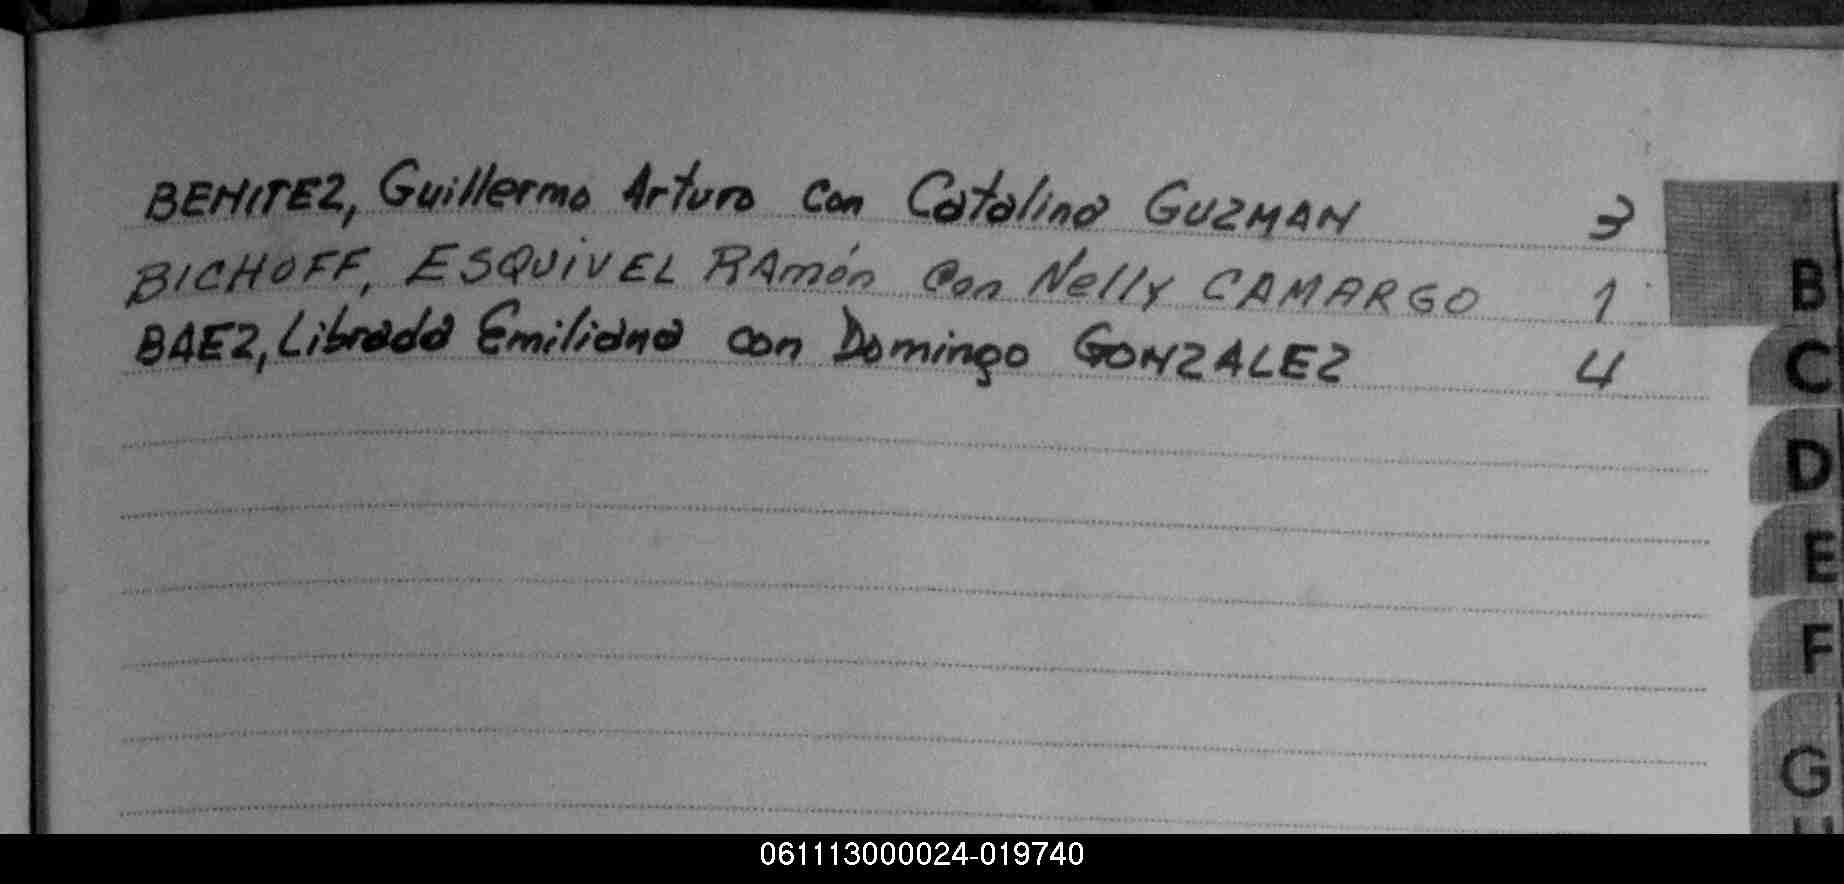 BENITEZ, Guillermo Arturo con Catalina GUZMAN 3
BICHOFF, ESQUIVEL RAMón con Nelly CAMARGO 1
BAEZ, Librada Emiliana con Domingo GONZALEZ 4
B
C
D
E
F
G
H
061113000024-019740